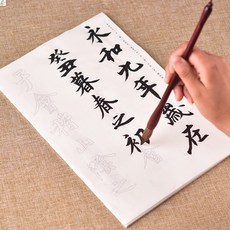 永和九年歲在
癸丑暮春之初